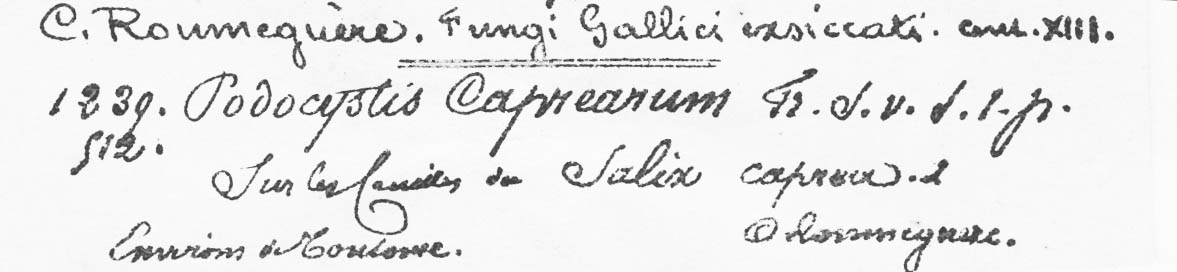 C. Roumeguère. Fungi Gallici exsiccati. cent. XIII.
1239. Podocystis Caprearum Fr. S. v. S. 1. p.
512.
Sur les feuilles du Salix caprea.
Environs de Toulouse. C Roumeguere.